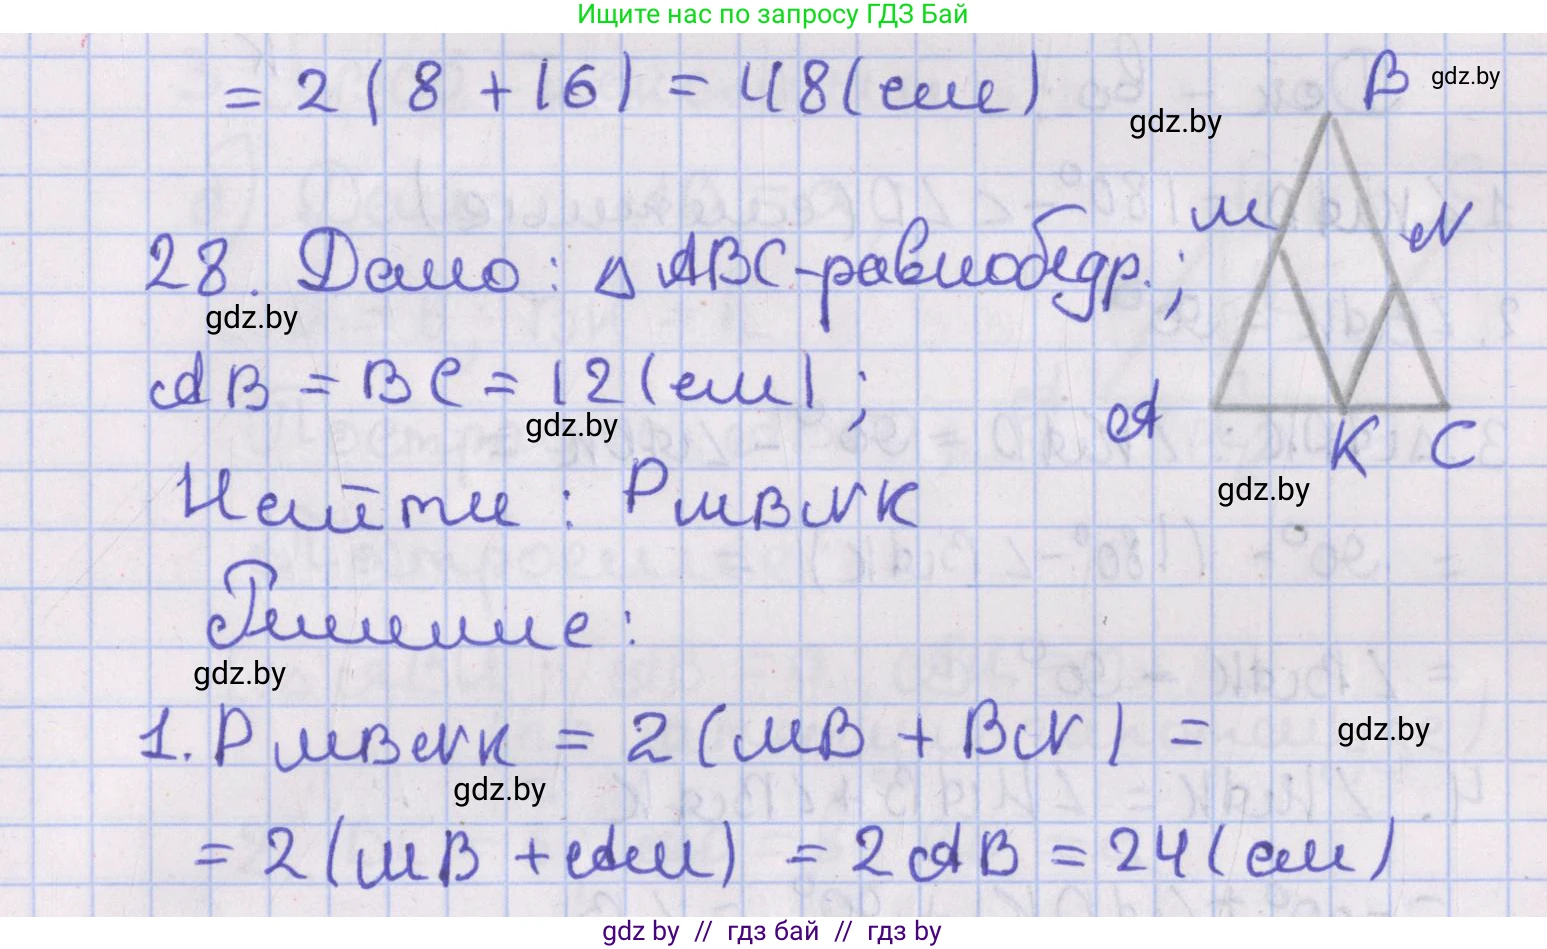 Ищите нас по запросу ГДЗ Бай
= 2(8 + 16) = 48(см)
B gdz.by
gdz.by
M
N
28. Дано: △ ABC - равнобедр.;
gdz.by
AB = BC = 12(см);
A
gdz.by
K C
gdz.by
Найти: PMBNK
Решение:
gdz.by
1. PMBNK = 2(MB + BN) =
gdz.by
gdz.by
= 2(MB + AM) = 2AB = 24(см)
gdz by // гдз бай // гдз by